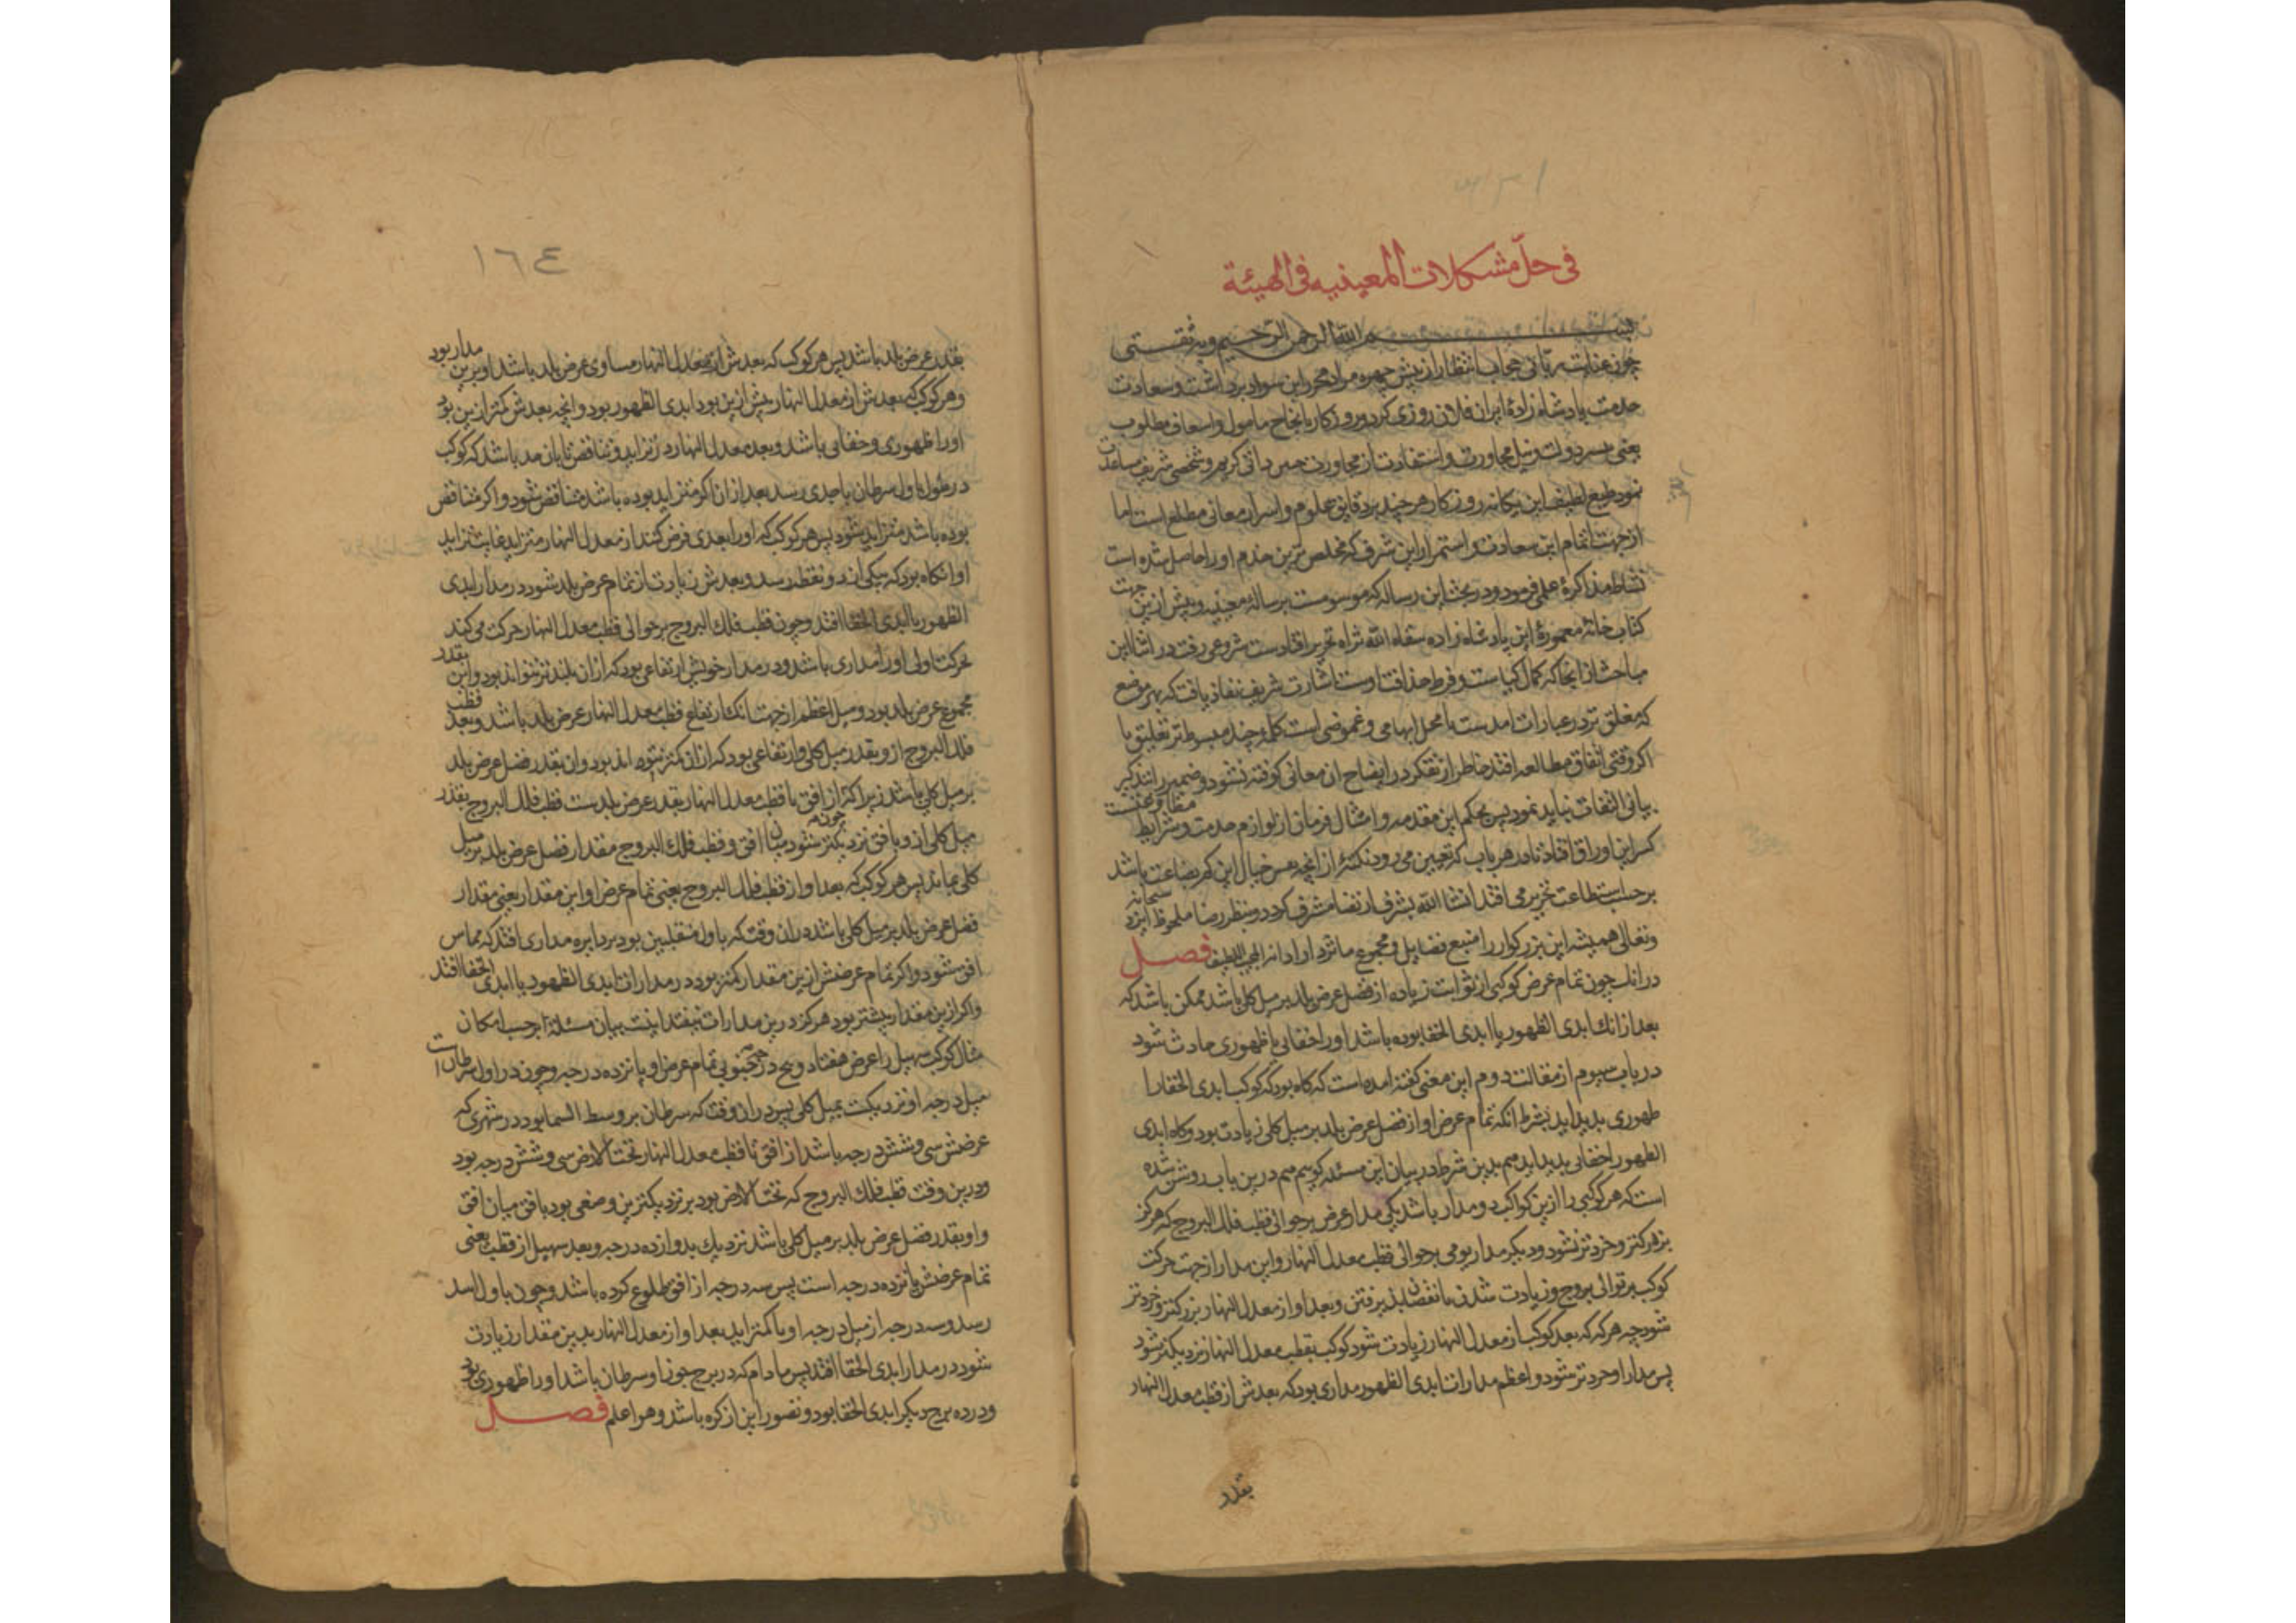 فی حلّ مشکلات المعینیه فی الهیئة
بسم الله الرحمن الرحیم وبه ثقتی
چون عنایت ربّانی حجاب انتظار از پیش چهره مراد محرر این سواد برداشت و سعادت
خدمت پادشاه زادهٔ ایران فلان روزی کرد و روزکار بانجاح مامول و اسعاف مطلوب
یعنی دولت و نیل مجاورت و استفادت از مجاورت ذاتی کریم و شخصی شریف مساعدت
نمود طبع لطیف این یکانه روزکار هر چند بر دقایق علوم و اسرار معانی مطلع است اما
از جهت اتمام این سعادت و استمرار این شرف که مخلص ترین خدم او را حاصل شده است
نشاط مذاکرهٔ علمی فرمود و در بحث این رساله که موسومست برسالهٔ معینیه و پیش ازین جهت
کتاب خانهٔ معمورهٔ این پادشاه زاده سقاه الله ثراه تحریر افتادست شروعی رفت در اثنا این
مباحث از انجا که کمال کیاست و فرط حذاقت اوست اشارت شریف نفاذ یافت که بهر موضع
که مغلق تر در عبارات امدست یا محل ابهامی و غموضی است کلمهٔ چند مبسوط تر تعلیق یا
اکر وقتی اتفاق مطالعه افتد خاطر از تفکر در ایضاح ان معانی کوفته نشود و ضمیر را تذکیر
بیانی التفات نباید نمود پس بحکم این مقدمه و امثال فرمان از لوازم خدمت و شرایط مطاوعتست
کس این اوراق افتاد تا در هر باب که تعیین می رود نکتهٔ از انچه خیال این کم بضاعت باشد
بر حسب استطاعت تحریر می افتد انشا الله بشرف ارتضا مشرف کردد و بنظر رضا ملحوظ ایزد سبحانه
وتعالی همیشه این بزرکوار را منبع فضایل و مجموع ماثر داراد انه اللطیف فصل
در انک چون تمام عرض کوکبی از ثوابت زیاده از فضل عرض بلد بر میل کلی باشد ممکن باشد که
بعد از انک ابدی الظهور یا ابدی الخفا بوده باشد او را خفایی یا ظهوری حادث شود
در باب سیوم از مقالت دوم این معنی کفته امده است که کاه بود که کوکب ابدی الخفا را
ظهوری پدید اید بشرط انکه تمام عرض او از فضل عرض بلد بر میل کلی زیادت بود و کاه ابدی
الظهور را خفایی پدید اید هم بدین شرط در بیان این مسئله کوییم هم درین باب روشن شده
است که هر کوکبی را ازین کواکب دو مدار باشد یکی مدار عرض بر حوالی قطب فلک البروج که هرکز
بزرکتر و خردتر نشود و دیکر مدار یومی بر حوالی قطب معدل النهار و این مدار از جهت حرکت
کوکب بر توالی بروج و زیادت شدن یا نقصان پذیرفتن و بعد او از معدل النهار بزرکتر و خردتر
شود چه هرکه که بعد کوکب از معدل النهار زیادت شود کوکب بقطب معدل النهار نزدیکتر شود
پس مدار او خردتر شود و اعظم مدارات ابدی الظهور مداری بود که بعدش از قطب معدل النهار
بقدر
١٦٤
بقدر عرض بلد باشد پس هر کوکب که بعدش از معدل النهار مساوی عرض بلد باشد او برین مدار بود
وهر کوکب که بعدش از معدل النهار بیش ازین بود ابدی الظهور بود وانچه بعدش کمتر ازین بود
او را ظهوری و خفایی باشد و بعد معدل النهار در تزاید و تناقص تا بان حد باشد که کوکب
در طول باول سرطان یا جدی رسد بعد از ان اکر متزاید بوده باشد متناقص شود و اکر متناقص
بوده باشد متزاید شود پس هر کوکب که او را بعدی فرض کنند از معدل النهار متزاید غایت تزاید
او انکاه بود که بیکی ازین دو نقطه رسد و بعدش زیادت از تمام عرض بلد شود در مدار ابدی
الظهور یا ابدی الخفا افتد و چون قطب فلک البروج بر حوالی قطب معدل النهار حرکت می کند
بحرکت اولی او را مداری باشد و در مدار خویش ارتفاعی بود که از ان بلندتر نتواند بود و این بقدر
مجموع عرض بلد بود و میل اعظم از جهت انک ارتفاع قطب معدل النهار عرض بلد باشد و بعد قطب
فلک البروج از و بقدر میل کلی و ارتفاعی بود که از ان کمتر نتواند بود و ان بقدر فضل عرض بلد
بر میل کلی باشد زیرا که از افق تا قطب معدل النهار بقدر عرض بلدست قطب فلک البروج بقدر
میل کلی از و بافق نزدیکتر شود میان افق و قطب فلک البروج مقدار فضل عرض بلد بر میل
کلی بماند پس هر کوکب که بعد او از قطب فلک البروج یعنی تمام عرض او این مقدار یعنی مقدار
فضل عرض بلد بر میل کلی باشد دران وقت که باول منقلبین بود بر دایره مداری افتد که مماس
افق شود و اکر تمام عرضش ازین مقدار کمتر بود در مدارات ابدی الظهور یا ابدی الخفا افتد
و اکر ازین مقدار بیشتر بود هرکز درین مدارات نیفتد اینست بیان مسئله بر حسب امکان
مثال کوکب سهیل را عرض هفتاد و پنج درجه جنوبی تمام عرض او پانزده درجه و چون در اول سرطان است
میل درجه او نزدیکست بمیل کلی پس دران وقت که سرطان بر وسط السما بود در شهری که
عرضش سی و شش درجه باشد از افق تا قطب معدل النهار تحت الارض سی و شش درجه بود
ودرین وقت قطب فلک البروج که تحت الارض بود بر نزدیکترین وضعی بود بافق میان افق
و او بقدر فضل عرض بلد بر میل کلی باشد نزدیک بدوازده درجه و بعد سهیل از قطب یعنی
تمام عرضش پانزده درجه است پس سه درجه از افق طلوع کرده باشد و چون باول اسد
رسد و سه درجه از میل درجه او با کمتر اید بعد او از معدل النهار بدین مقدار زیادت
شود در مدار ابدی الخفا افتد پس مادام که در برج جوزا و سرطان باشد او را ظهوری بود
ودر ده برج دیکر ابدی الخفا بود و تصور این از کره باشد وهو اعلم فصل